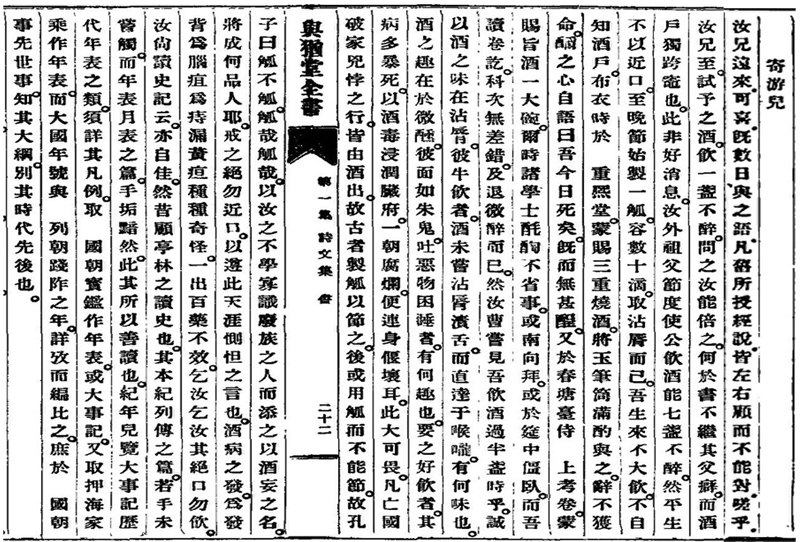 寄游兒
汝兄遠來。可喜。旣數日與之語。凡舊所授經說。皆左右顧而不能對。嗟乎。
汝兄至。試予之酒。飮一盞不醉。問之汝能倍之。何於書不繼其父癖。而酒
戶獨跨竈也。此非好消息。汝外祖父節度使公。飮酒能七盞不醉。然平生
不以近口。至晚節始製一觚。容數十滴。取沾脣而已。吾生來不大飮。不自
知酒戶。布衣時於　重熙堂。蒙賜三重燒酒。將玉筆筒滿酌與之。辭不獲
命。釂之。心自語曰吾今日死矣。旣而無甚醒。又於春塘臺侍　上考卷。蒙
賜旨酒一大碗。爾時諸學士酕醄不省事。或南向拜。或於筵中僵臥。而吾
讀卷訖。科次無差錯。及退微醉而已。然汝曹嘗見吾飮酒過半盞時乎。誠
以酒之味在沾脣。彼牛飮者。酒未嘗沾脣漬舌而直達于喉嚨。有何味也。
酒之趣在於微醺。彼面如朱鬼。吐惡物困睡者。有何趣也。要之好飮者。其
病多暴死。以酒毒浸潤臟府。一朝腐爛。便連身偃壞耳。此大可畏。凡亡國
破家兇悖之行。皆由酒出。故古者製觚以節之。後或用觚而不能節。故孔
與猶堂全書 第一集 詩文集 書 二十二
子曰觚不觚。觚哉觚哉。以汝之不學寡識廢族之人。而添之以酒妄之名。
將成何品人耶。戒之絕勿近口。以遵此天涯惻怛之言也。酒病之發。爲發
背爲腦疽爲痔漏黃疸。種種奇怪。一出百藥不效。乞汝乞汝。其絕口勿飮。
汝尙讀史記云亦自佳。然昔顧亭林之讀史也。其本紀列傳之篇。若手未
嘗觸。而年表月表之篇。手垢黯然。此其所以善讀也。紀年兒覽大事記歷
代年表之類。須詳其凡例。取　國朝寶鑑。作年表或大事記。又取押海家
乘作年表。而大國年號與　列朝踐阼之年。詳攷而編比之。庶於　國朝
事先世事。知其大綱。別其時代先後也。